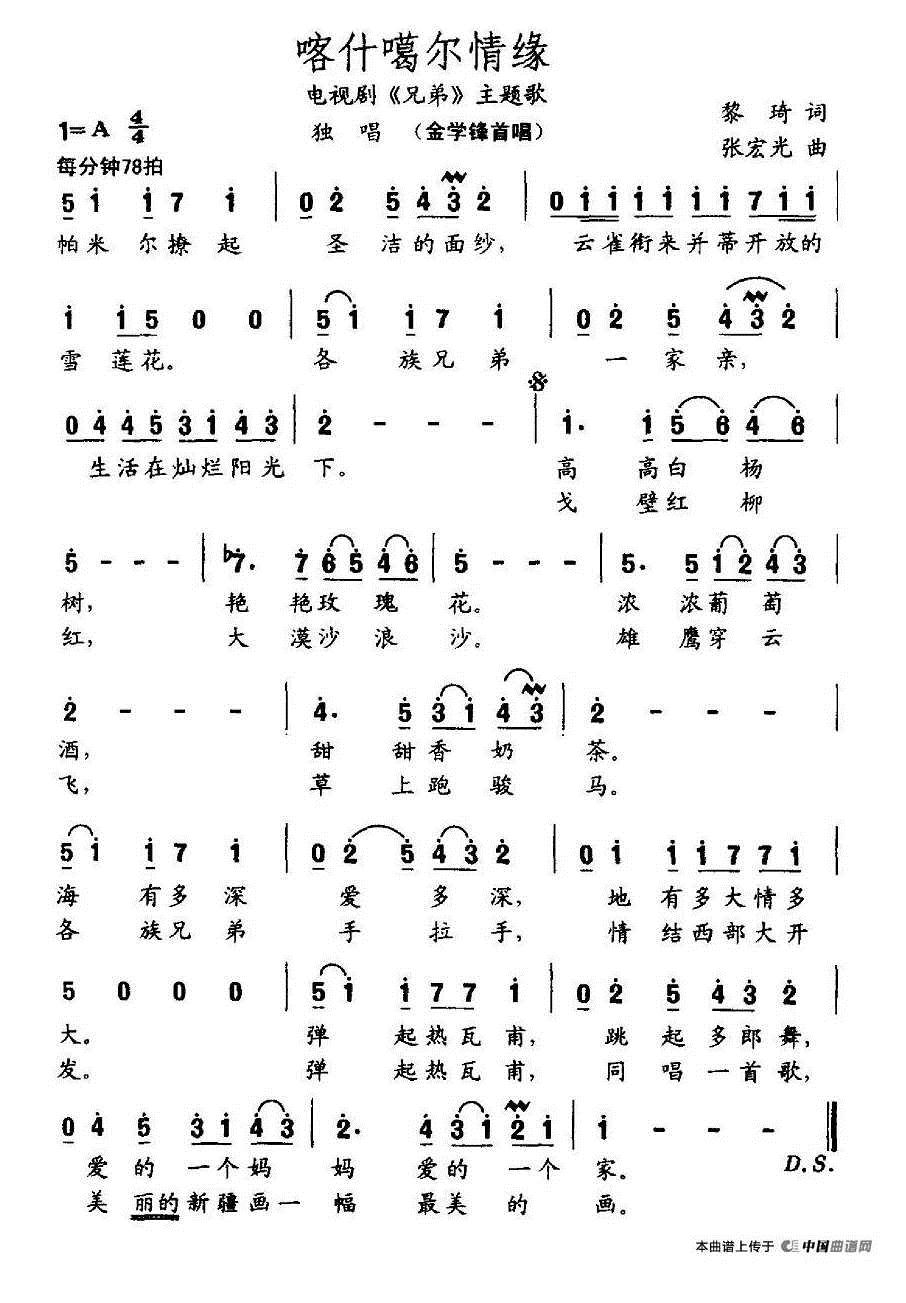 喀什噶尔情缘
电视剧《兄弟》主题歌
1=A 4/4 独唱 (金学锋首唱) 黎琦 词
每分钟78拍 张宏光 曲
5 1 1 7 1 | 0 2 5 4 3 2 | 0 1 1 1 1 1 1 7 1 1 |
帕米尔撩起 圣洁的面纱, 云雀衔来并蒂开放的
1 1 5 0 0 | 5 1 1 7 1 | 0 2 5 4 3 2 |
雪莲花。 各族兄弟 一家亲,
0 4 4 5 3 1 4 3 | 2 - - - | 1. 1 5 6 4 6 |
生活在灿烂阳光下。 高高白杨
戈壁红柳
5 - - - | ♭7. 7 6 5 4 6 | 5 - - - | 5. 5 1 2 4 3 |
树, 艳艳玫瑰花。 浓浓葡萄
红, 大漠沙浪沙。 雄鹰穿云
2 - - - | 4. 5 3 1 4 3 | 2 - - - |
酒, 甜甜香奶茶。
飞, 草上跑骏马。
5 1 1 7 1 | 0 2 5 4 3 2 | 0 1 1 1 7 7 1 |
海有多深 爱多深, 地有多大情多
各族兄弟 手拉手, 情结西部大开
5 0 0 0 | 5 1 1 7 7 1 | 0 2 5 4 3 2 |
大。 弹起热瓦甫, 跳起多郎舞,
发。 弹起热瓦甫, 同唱一首歌,
0 4 5 3 1 4 3 | 2. 4 3 1 2 1 | 1 - - - ‖
爱的一个妈妈爱的一个家。 D.S.
美丽的新疆画一幅最美的画。
本曲谱上传于 中国曲谱网